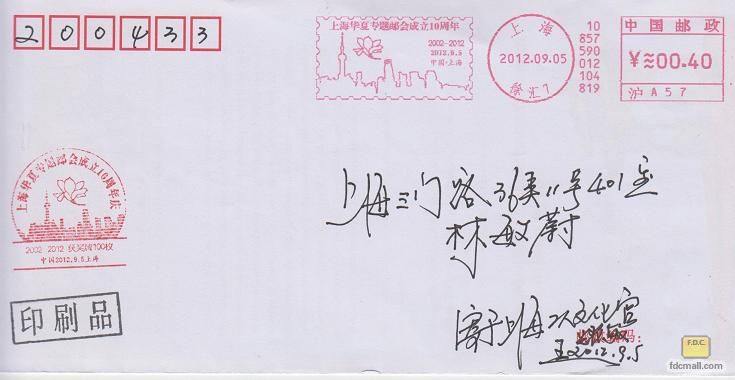 200433
上海华夏专题邮会成立10周年
2002-2012
2012.9.5
中国·上海
上海
2012.09.05
徐汇1
10
857
590
012
104
819
中国邮政
¥≋00.40
沪 A57
上海华夏专题邮会成立10周年庆
2002-2012 获奖牌100枚
中国2012.9.5上海
印刷品
上海三门路36弄11号401室
林敏蔚
寄于上海二人文化宫
编码:
2012.9.5
F.D.C.
fdcmall.com